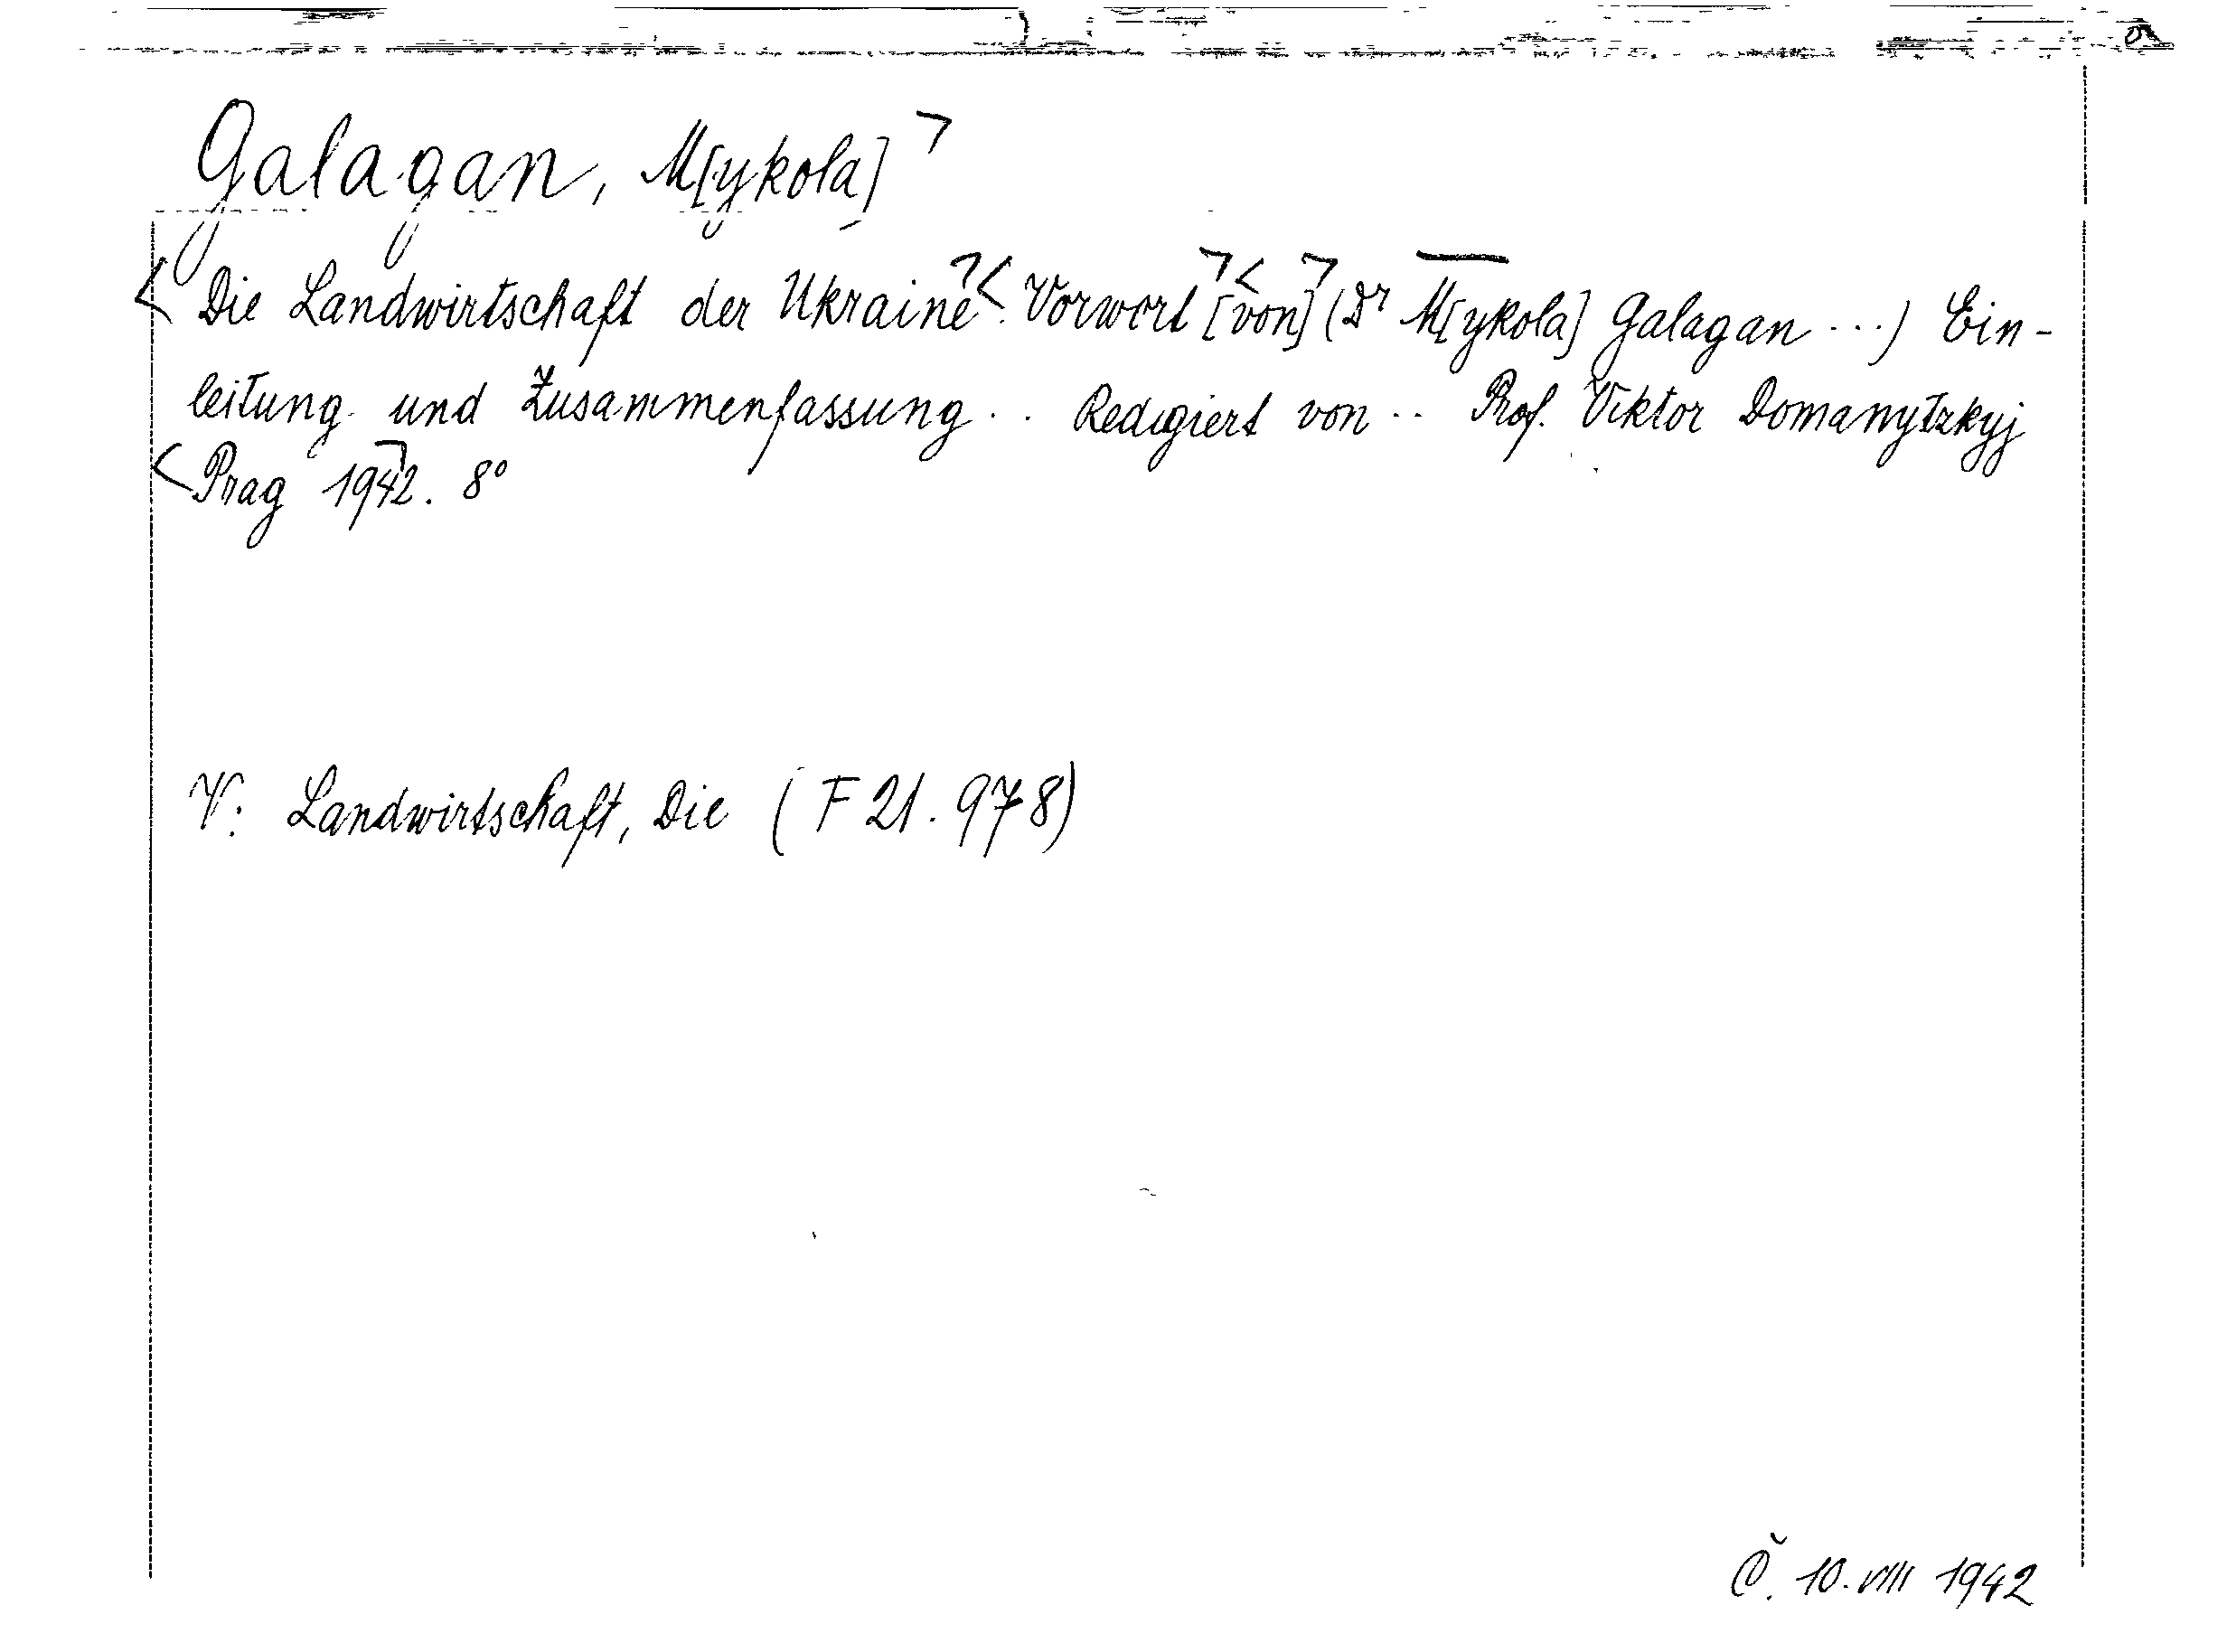 Galagan, M[ykola]
Die Landwirtschaft der Ukraine. Vorwort [von] (Dr M[ykola] Galagan ...) Ein-
leitung und Zusammenfassung .. Redigiert von .. Prof. Viktor Domanytzkyj
Prag 1942. 8°
V: Landwirtschaft, Die (F 21.978)
Č. 10. VIII 1942